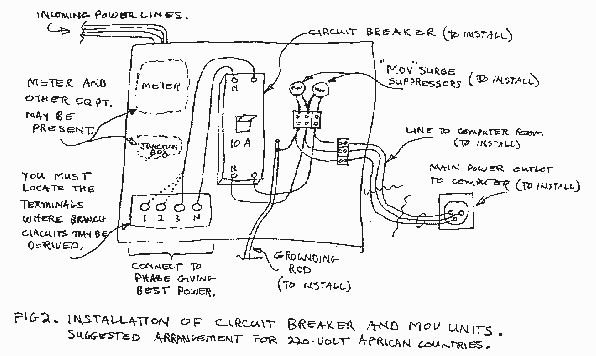 INCOMING POWER LINES.
CIRCUIT BREAKER (TO INSTALL)
"MOV" SURGE
SUPPRESSORS (TO INSTALL)
METER
METER AND
OTHER EQPT.
MAY BE
PRESENT.
JUNCTION
BOX
10 A
LINE TO COMPUTER ROOM
(TO INSTALL)
MAIN POWER OUTLET
TO COMPUTER (TO INSTALL)
YOU MUST
LOCATE THE
TERMINALS
WHERE BRANCH
CIRCUITS MAY BE
DERIVED.
1 2 3 N
CONNECT TO
PHASE GIVING
BEST POWER.
GROUNDING
ROD
(TO INSTALL)
FIG 2. INSTALLATION OF CIRCUIT BREAKER AND MOV UNITS.
SUGGESTED ARRANGEMENT FOR 220-VOLT AFRICAN COUNTRIES.